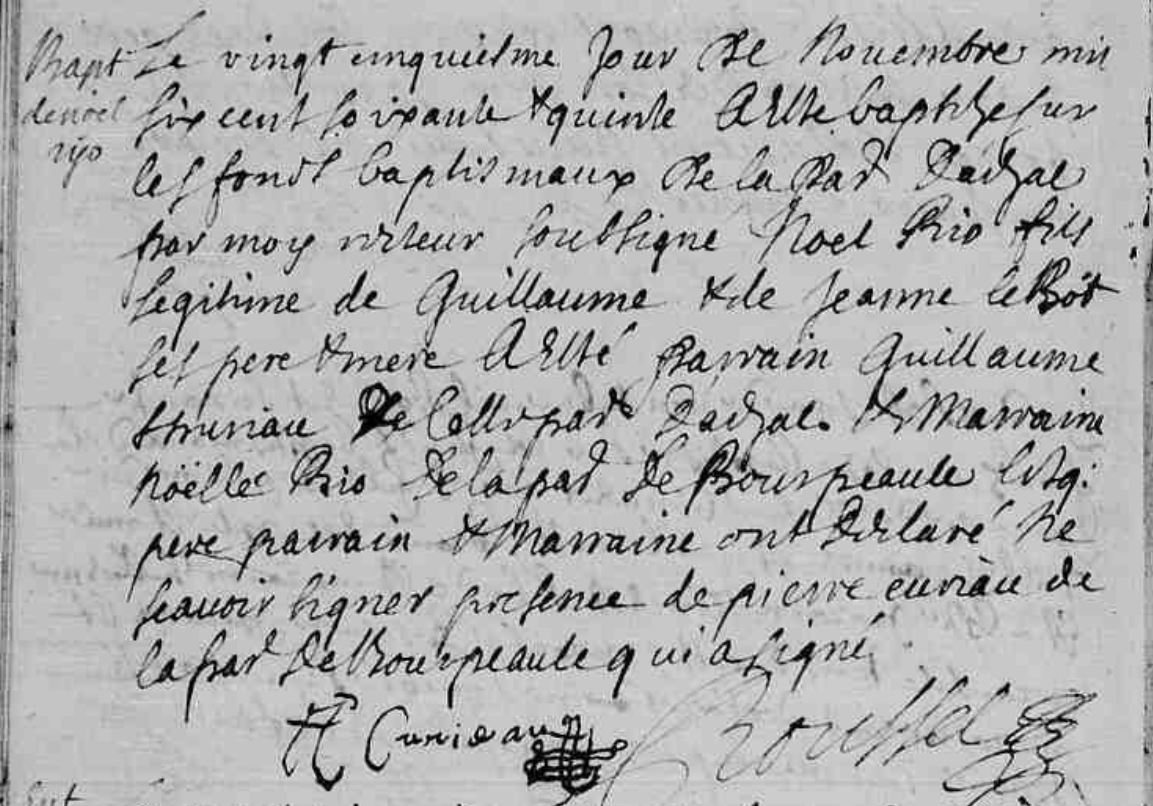 Bapt
de noel
rijo
Le vingt cinquiesme jour de Nouembre mil
six cent soixante & quinze A Esté baptizé sur
les fonds baptismaux de la par
par moy recteur soubsigne Noel Rio fils
legitime de Guillaume & de Jeanne le Bot
ses pere & mere A Esté parrain Guillaume
de Celle par & Marraine
Nöelle Rio de la par de Bourpeaule lesq.
pere parrain & Marraine ont declaré Ne
scauoir signer presence de pierre euriau de
la par de Bourpeaule qui a signé
P Eurieau Roussel